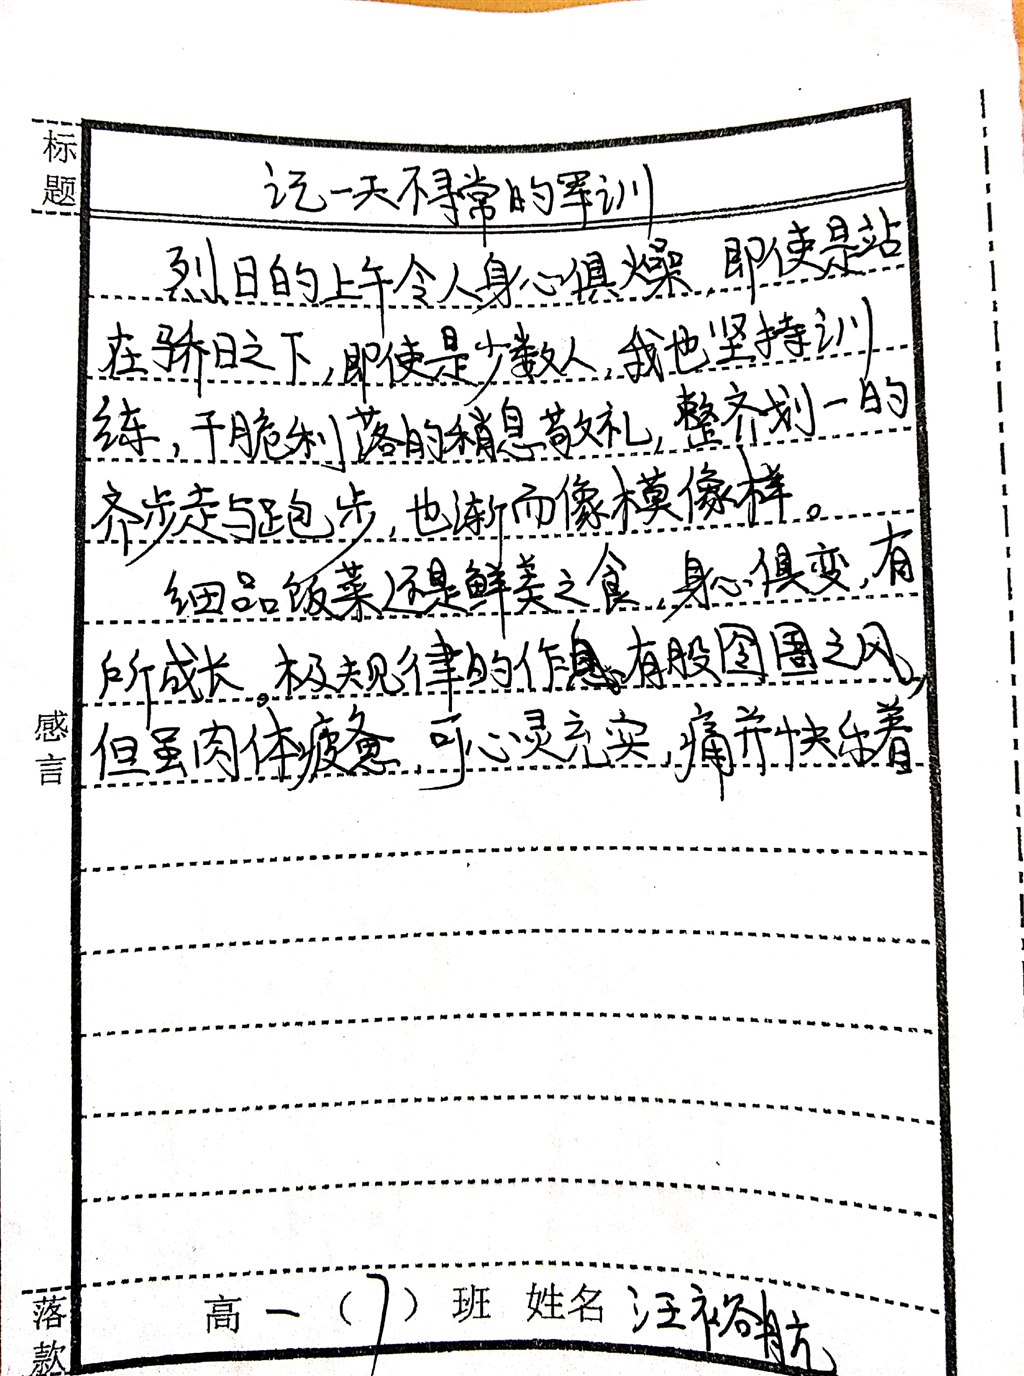 标题
记一天不寻常的军训
烈日的上午令人身心俱燥,即使是站
在骄日之下,即使是少数人,我也坚持训
练,干脆利落的稍息敬礼,整齐划一的
齐步走与跑步,也渐而像模像样。
细品饭菜还是鲜美之食,身心俱变,有
所成长。极规律的作息。有股囹圄之风,
但虽肉体疲惫,可心灵充实,痛并快乐着
感言
落款
高一(7)班 姓名 汪裕航